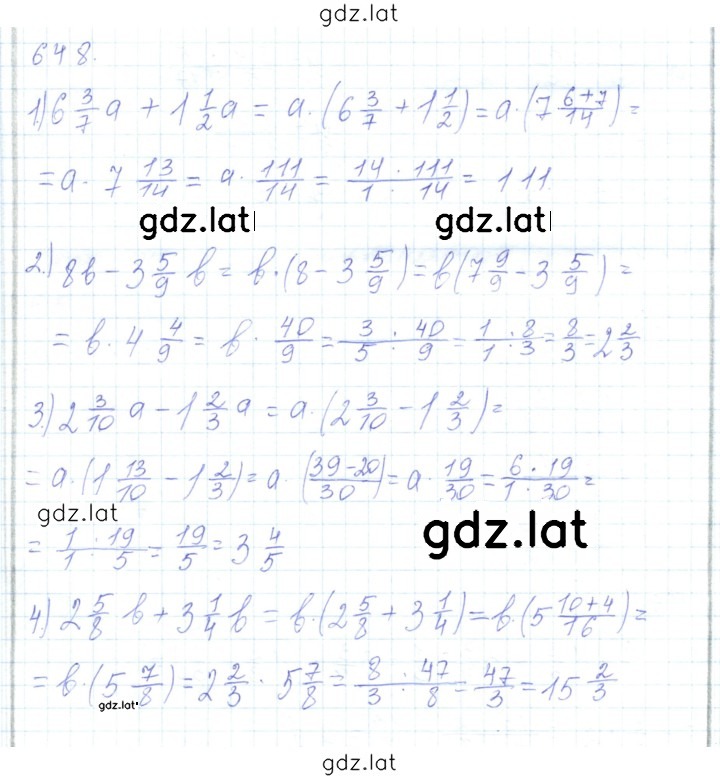 gdz.lat
648.
1) 6 3/7 a + 1 1/2 a = a·(6 3/7 + 1 1/2) = a·(7 (6+7)/14) =
= a· 7 13/14 = a· 111/14 = (14 · 111)/(1 · 14) = 111.
gdz.lat gdz.lat
2.) 8b - 3 5/9 b = b·(8 - 3 5/9) = b(7 9/9 - 3 5/9) =
= b· 4 4/9 = b· 40/9 = (3 · 40)/(5 · 9) = (1 · 8)/(1 · 3) = 8/3 = 2 2/3
3.) 2 3/10 a - 1 2/3 a = a·(2 3/10 - 1 2/3) =
= a·(1 13/10 - 1 2/3) = a·((39-20)/30) = a· 19/30 = (6 · 19)/(1 · 30) =
gdz.lat gdz.lat
= (1 · 19)/(1 · 5) = 19/5 = 3 4/5
4) 2 5/8 b + 3 1/4 b = b·(2 5/8 + 3 1/4) = b·(5 (10+4)/16) =
= b·(5 7/8) = 2 2/3 · 5 7/8 = (8 · 47)/(3 · 8) = 47/3 = 15 2/3
gdz.lat
gdz.lat